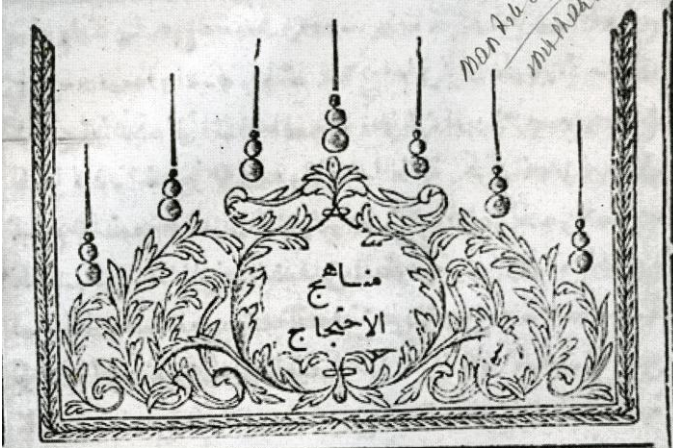 مناهج
الاحتجاج